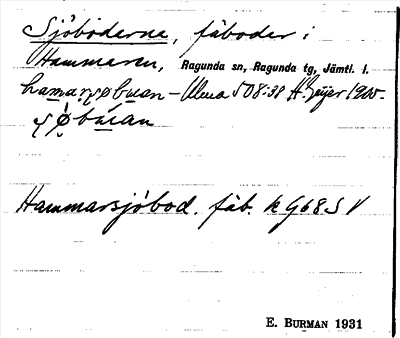 Sjöboderna, fäboder i
Hammaren, Ragunda sn, Ragunda tg, Jämtl. l.
Ulma 508:38 H. Geijer 1905-
Hammarsjöbod. fäb. k G68SV
E. BURMAN 1931